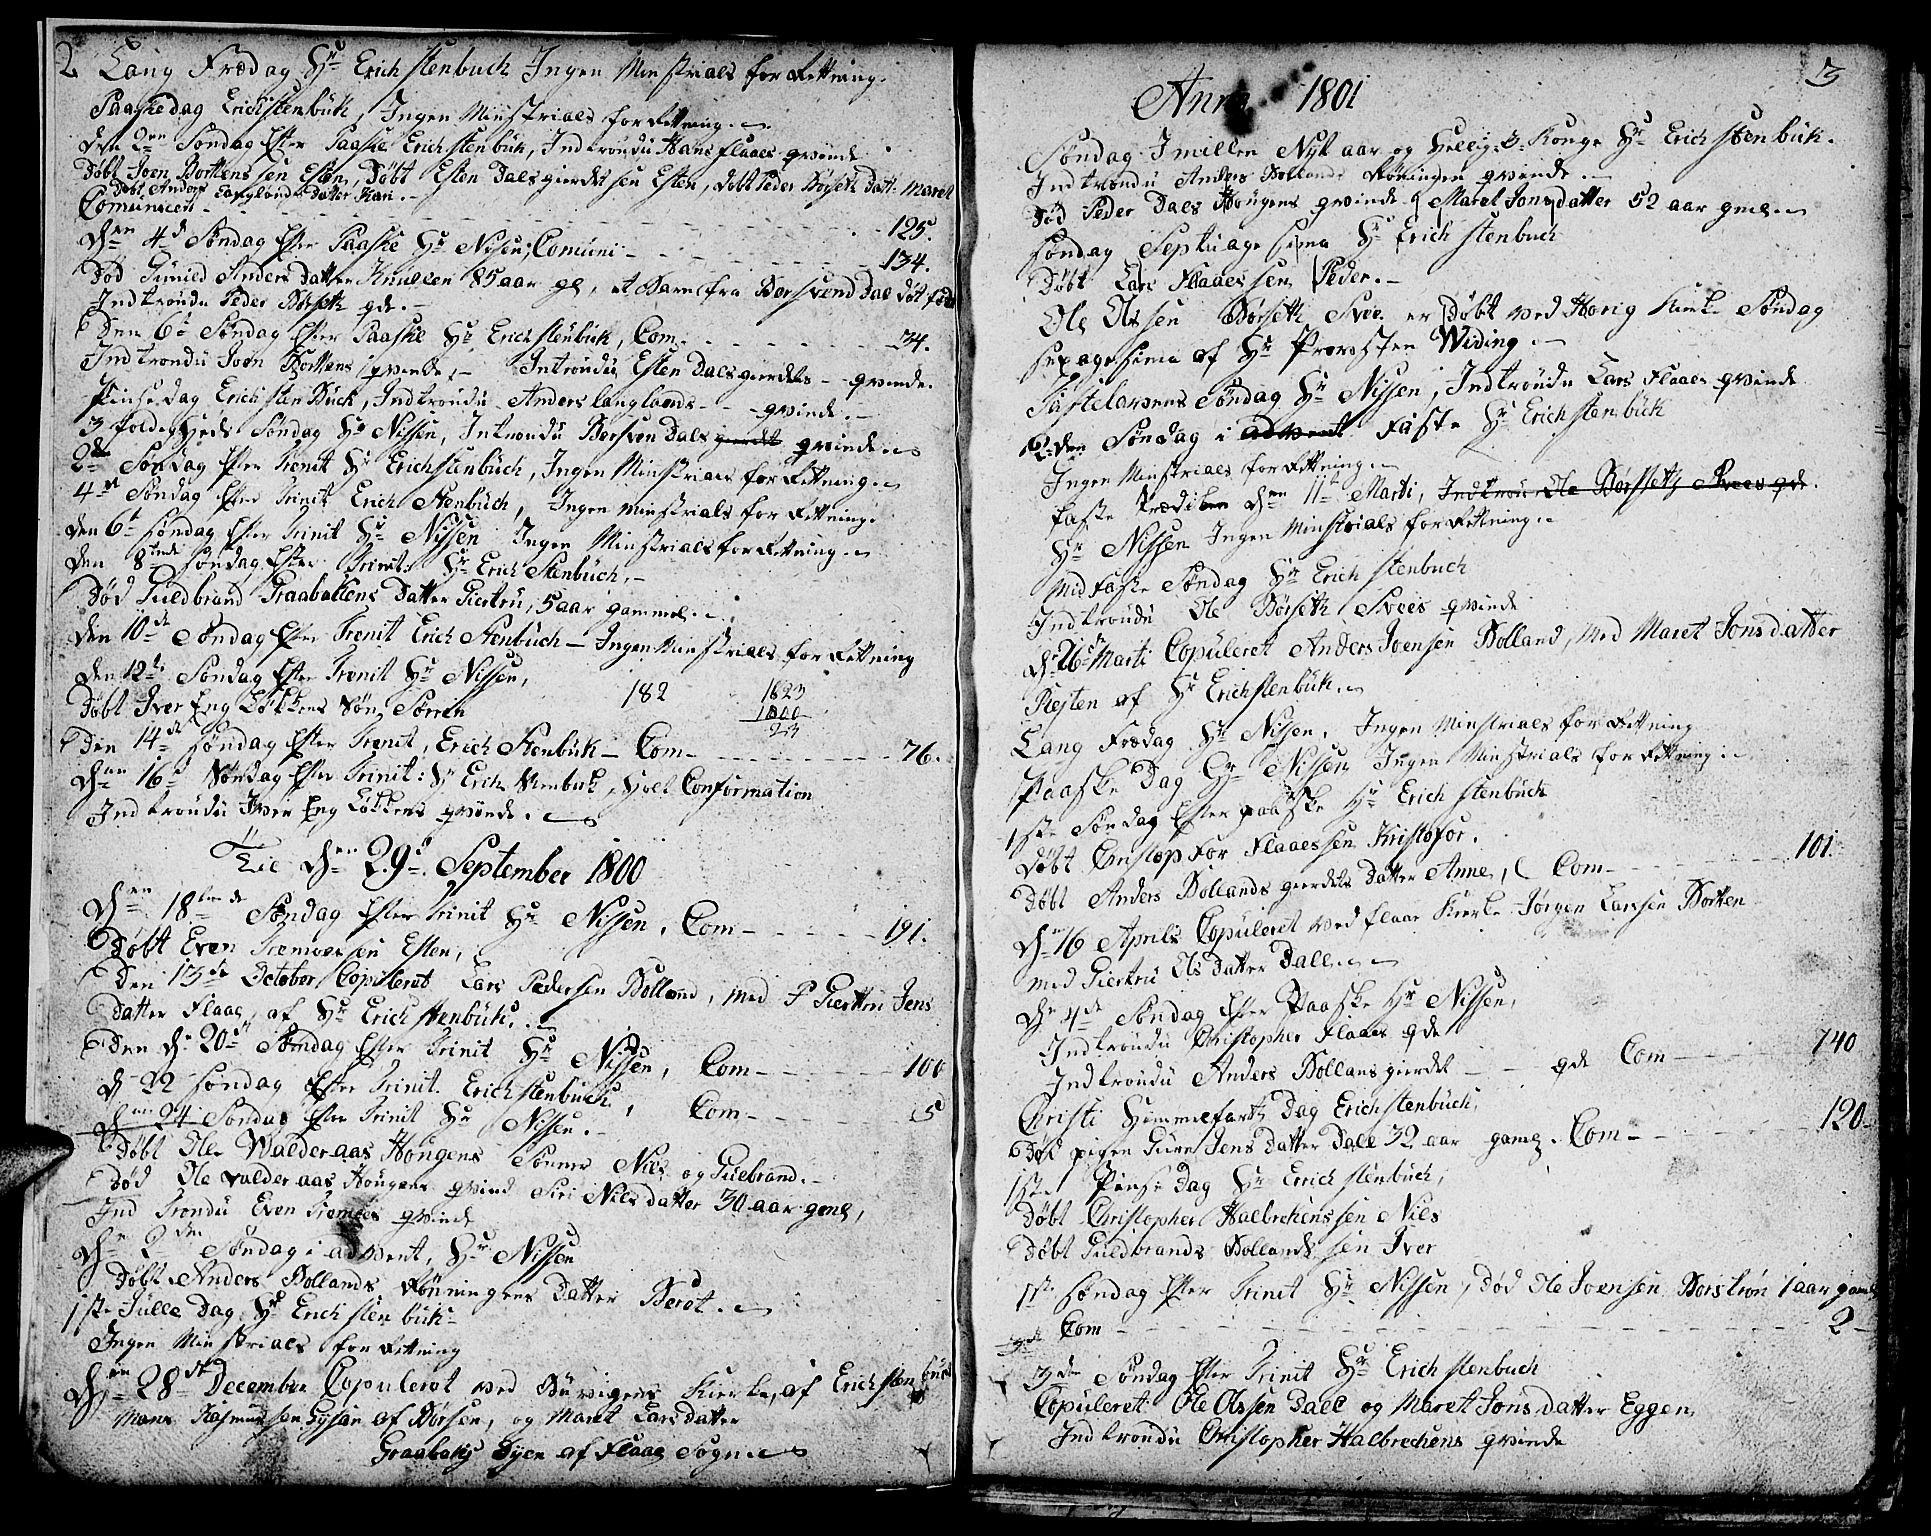 2 Lang Fredag Hr Erich Stenbuch Ingen Minstrials forRettning.
Paaskedag Erich Stenbük, Ingen Ministrials forRettning.
den 2en Søndag Efter Paaske Erich Stenbük, Indtrondu Hans flaaes qvinde
Døbt Joen Bortens sen Esten, Døbt Esten Dalsgierdes sen Esten, døbt Peder Børsets Datt. Maret
Døbt Anders Langlands datter Kari.
Comunicen - - - 125.
Den 4de Søndag Efter Paaske Hr Nissen; Comuni - - - 134.
Død Gunild Anders datter 85 aar gl, et Barn fra Borsvend Dal død fød
Indtrondu Peder Børseth qde.
Den 6te Søndag Efter Paaske Hr Erich Stenbük, Com. - - - 34.
Indtrondu Joen Bortens qvinde, - Introndu Esten Dalsgierdets - qvinde.
Pinse dag Erich Sten Buck, Indtrondu Anders langlands - - qvinde.
3 foldigheds Søndag Hr Nissen, Introndu Bersven Dals gierdet qvinde.
2den Søndag Efter Trenit Hr Erichstenbuch, Ingen Minstriaes for Rettning.
4de Søndag Efter Trinit Erich Stenbuch, Ingen minstrials for Rettning.
Den 6te søndag Efter Trinit Hr Nissen Ingen Minstrials forRettning.
Den 8tende søndag Efter Trinit: Hr Erich Stenbuch.
Død Guldbrand Graabakkens Datter Giertru, 5 aar gammel.
Den 10de Søndag Efter Trenit Erich Stenbuch - Ingen Minstriaes for Rettning
Den 12te Søndag Efter Trenit Hr Nissen,
Døbt Iver Eng Løkkens Søn Sørren 182 1823
1800
23
Den 14de søndag Efter Trenit, Erich Stenbük - Com - - - 76.
Den 16de Søndag Efter Trinit: Hr Erich Stenbuk, Holt Conformation
Indtrondu Iver Eng Løkkens qvinde.
Til Den 29de September 1800
Den 18tende Søndag Efter Trinit Hr Nissen, Com - - - 191.
Døbt Even sen Esten,
Den 13de October Copuleret Lars Pedersen Bolland, med P Giertru Jens
datter Flaae, af Hr Erich Stenbük.
Den d. 20de Søndag Efter Trinit Hr Nissen, Com - - - 100
d. 22 søndag Efter Trinit. Erichstenbuch, Com - - 5
Den 24 Søndag Efter Trinit Hr Nissen.
Døbt Ole Walderaas Hougens Sønner Nils og Gulbrand.
Død Ole valderaas Hougens qvinde Siri Nilsdatter 30 aar gml,
Ind Trondu Even qvinde
Den 2den Søndag i advent, Hr Nissen
Døbt Anders Bollands Rønningens Datter Berot.
1ste Julle Dag Hr Erich Stenbük
Ingen Minstriaes for Rettning
Den 28de December Copuleret ved Büvigens Kierke, af Erich Stenbuk
Mons Rasmussen af Børsen, og Maret Larsdatter
Graabaks Eyen af Flaae Sogn.
3
Anno 1801
Søndag Imillen Nyt aar og Hellig 3 Konge Hr Erich Stenbük.
Indtrondu Anders Bollands Rønningen qvinde.
Død Peder Daes Hougens qvinde Maret Jonsdatter 52 aar gml.
Søndag Septuagesima Hr Erich Stenbuch
Døbt Lars Flaaes sen Peder.
Ole Olssen Børseth Svee er Døbt ved Horig Kirke Søndag
sexagesima af Hr Provsten Widing.
Fastelavens Søndag Hr Nissen, Indtrondu Lars Flaaes qvinde
2den Søndag i advent Faste Hr Erich Stenbük
Ingen Ministrials forRettning.
faste Prediken den 11te Marti, Indtrou Ole Børseth Svees qde.
Hr Nissen Ingen Minstrials forRettning.
Midfaste Søndag Hr Erich Stenbuch
Indtrondu Ole Børseth Svees qvinde
d. 26de Marti Copuleret Anders Joensen Bolland, med Maret Jonsdatter
Plejten af Hr Erich Stenbük.
Lang Fredag Hr Nissen, Ingen Minstrials for Retning
Paaske Dag Hr Nissen Ingen Minstrials for Retning.
1ste Søndag Efter paaske Hr Erich Stenbuch
Døbt Christopfor Flaaes sen Kristofor.
Døbt Anders Bollands gierdets Datter Anne, Com - - - 101.
d. 16 Aprils Copuleret ved flaae Kierke Jørgen Larssen Borten
med Giertru Olsdatter Dall.
d. 4de Søndag Efter Paaske Hr Nissen,
Indtrondu Christopher Flaaes qde
Indtrondu Anders Bollansgierdet - - qde Com - - - 140
Christi Himmelfarts Dag Erich Stenbuch,
Død pigen Guren Jens datter Dall 32 aar gaml. Com - - - 120.
1ste Pinse Dag Hr Erich Stenbuch,
Døbt Christopher Halbrekens sen Nils
Døbt Guldbrands Bollands sen Iver
1ste søndag Efter Trinit Hr Nissen, Død Ole Joensen 1 aar gamel
Com - - - 2
3de Søndag Efter Trinit Hr Erich Stenbuch
Copuleret Ole Olssen Dall og Maret Jonsdatter Eggen,
Indtrondu Christopher Halbrechens qvinde